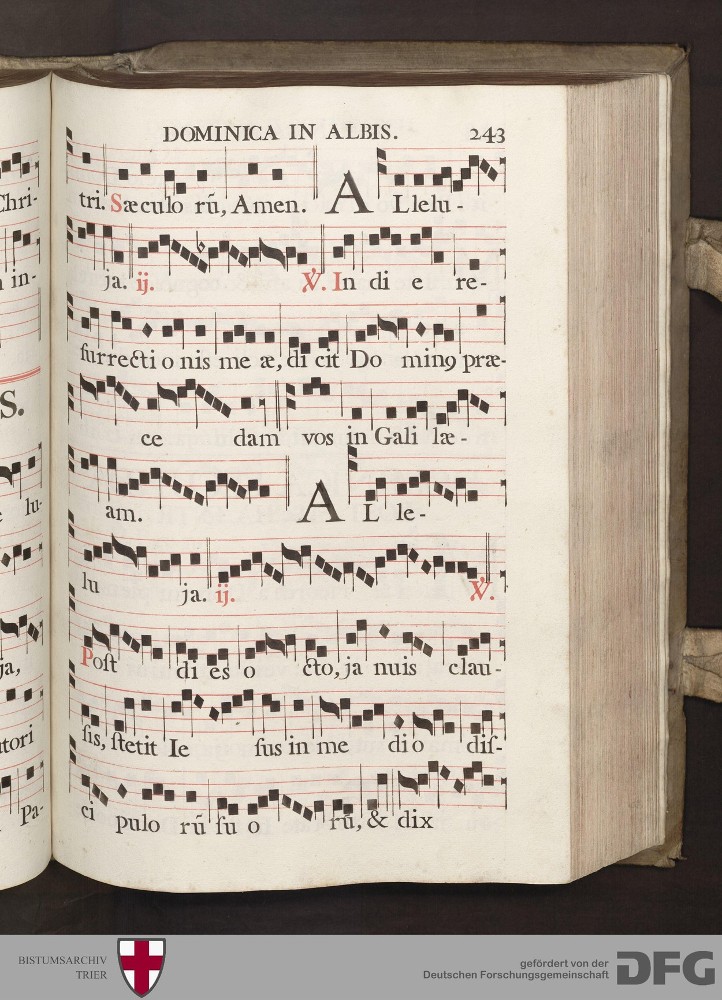 DOMINICA IN ALBIS. 243
tri. Sæculo rũ, Amen. A Llelu-
ja. ij. ℣. In di e re-
ſurrecti o nis me æ, di cit Do minꝰ præ-
ce dam vos in Gali læ-
am. A L le-
lu ja. ij. ℣.
Poſt di es o cto, ja nuis clau-
ſis, ſtetit Ie ſus in me di o diſ-
ci pulo rũ ſu o rũ, & dix
Chri-
in-
S.
lu-
ja,
Pa-
BISTUMSARCHIV
TRIER
gefördert von der
Deutschen Forschungsgemeinschaft
DFG